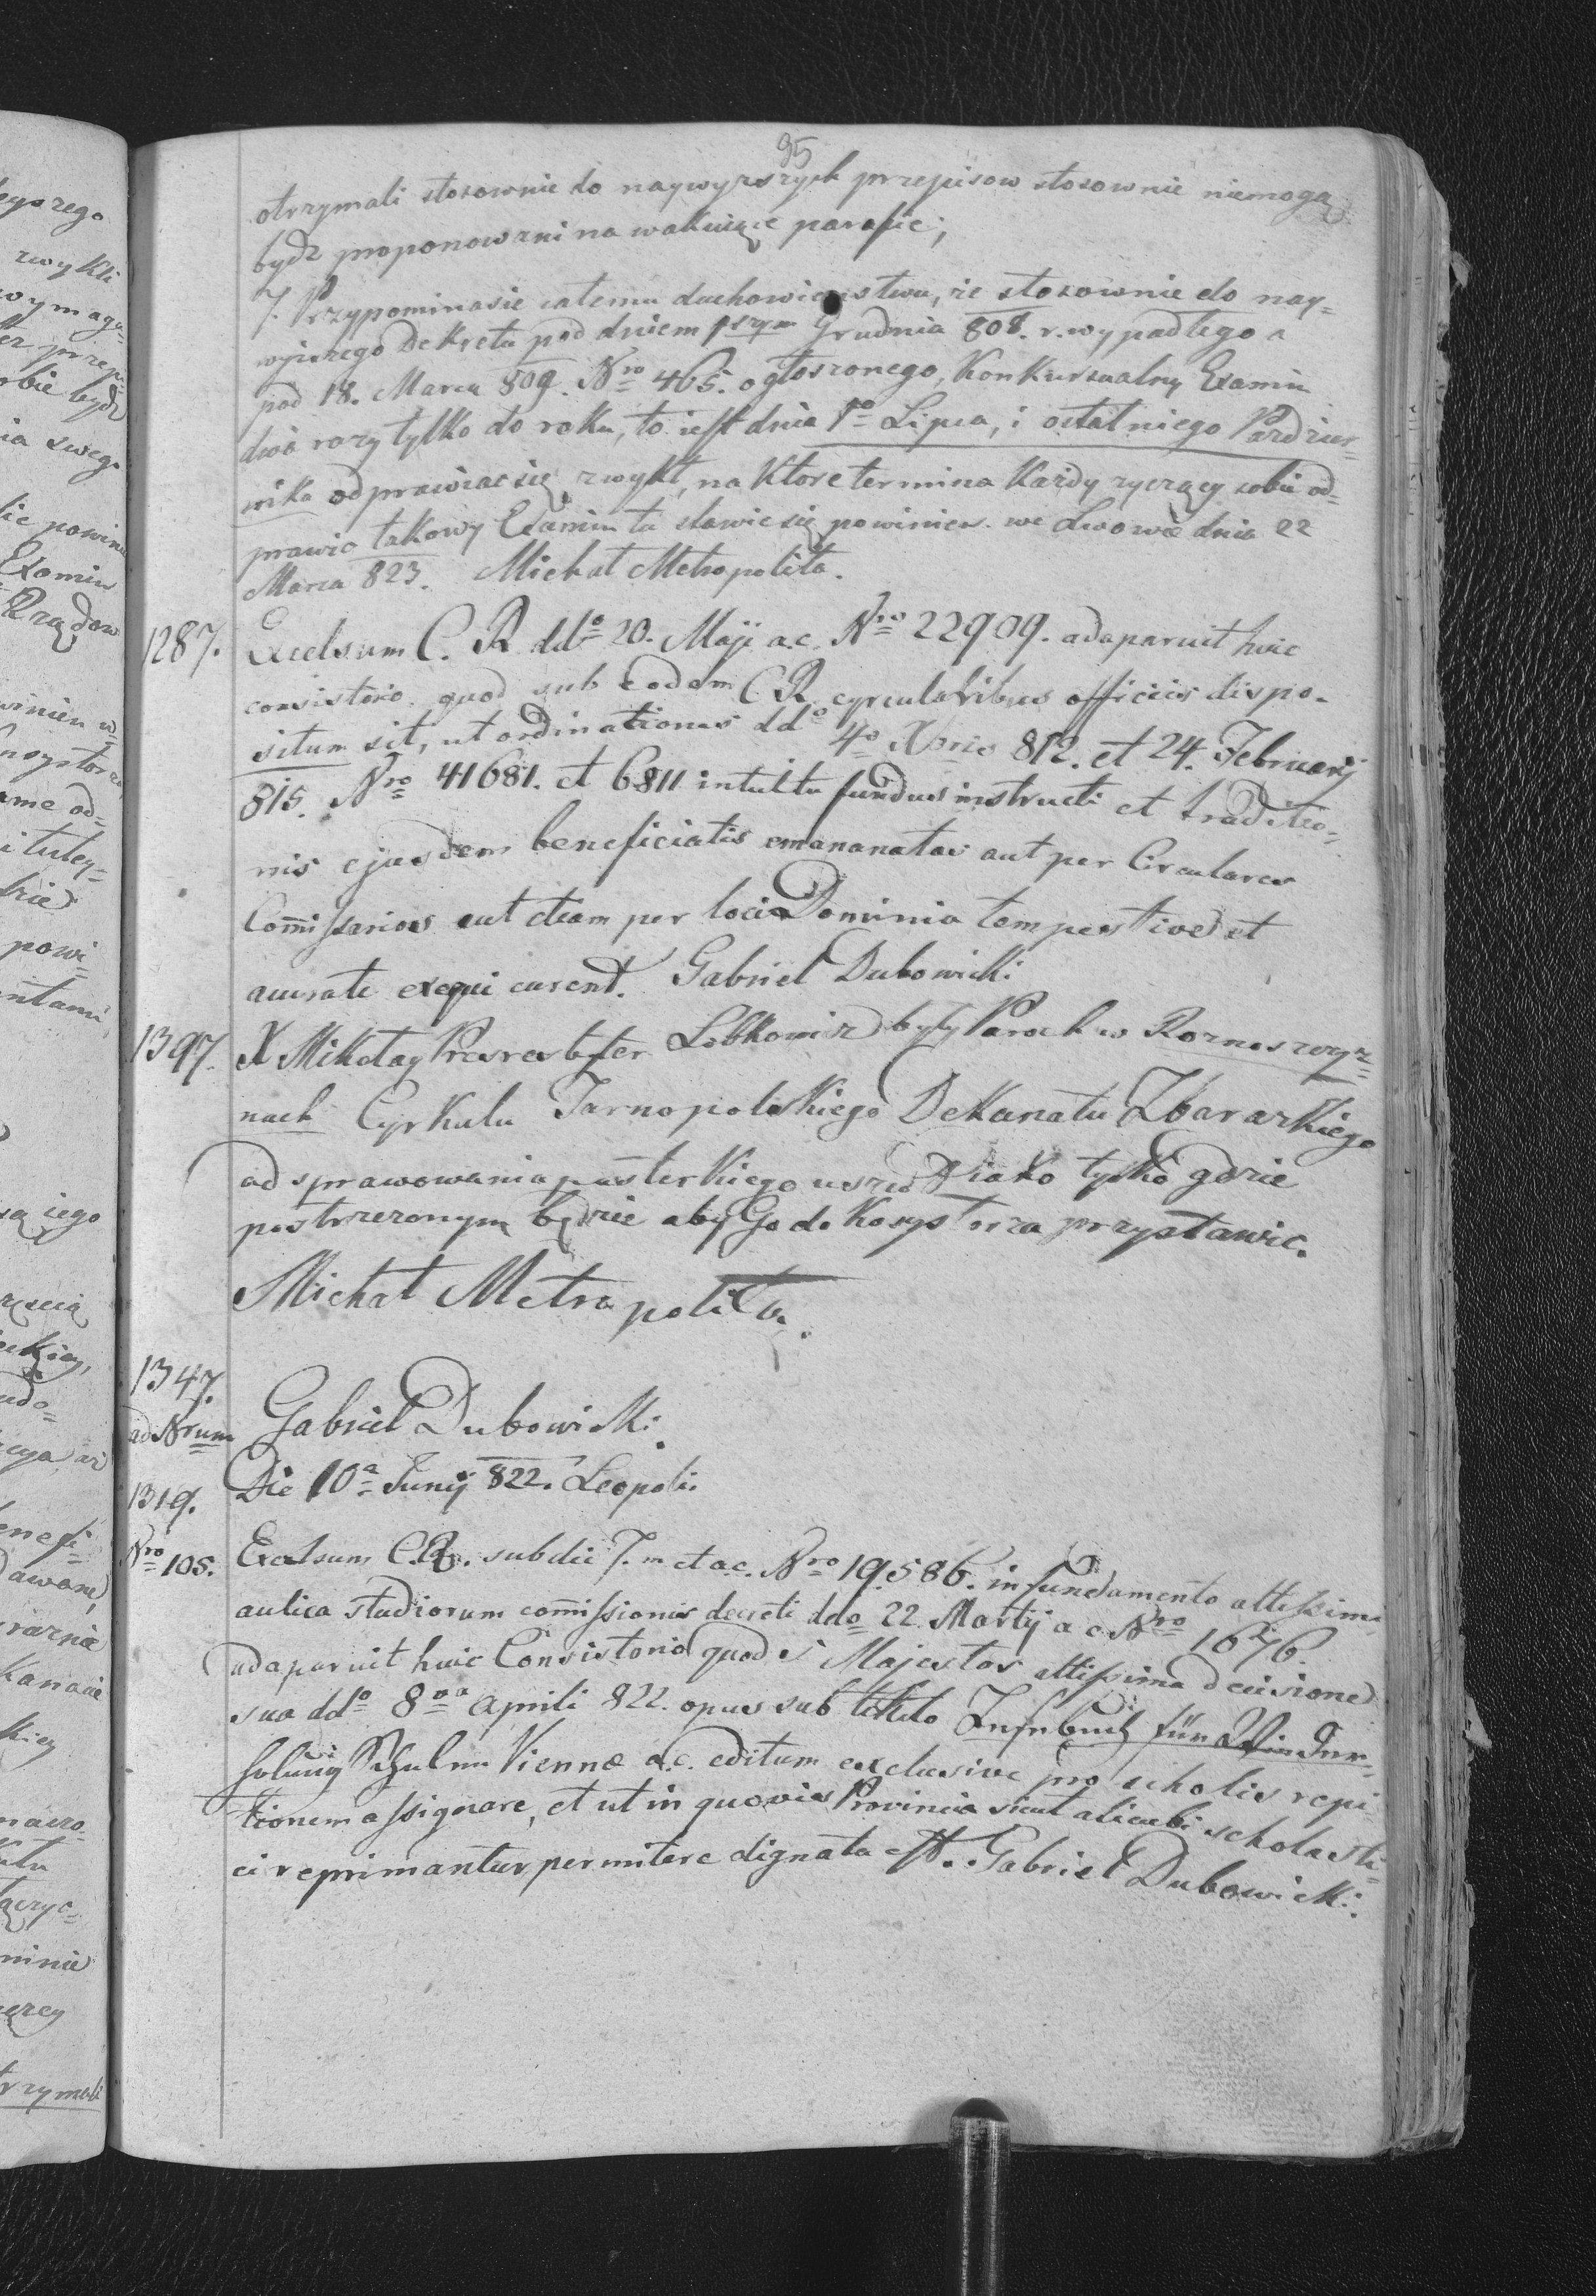 95
otrzymali stosownie do naywyzszych przepisow stosownie niemogą
bydz proponowani na wakuiące parafie;
7. Przypominasie całemu duchowienstwu, że stosownie do nay=
wyższego Dekretu pod dniem 1szym Grudnia 808. r. wypadłego a
pod 18. Marca 809. Nro 465. ogłoszonego, Konkursualny Examin
dwa razy tylko do roku, to iest dnia 1o Lipca, i ostatniego Pazdzier=
nika odprawiac się zwykł, na Ktore termina Każdy zyczący sobie od=
prawic takowy Examin tu stawic się powinien. we Lwowie dnia 22
Marca 823. Michał Metropolita.
1287. Excelsum C. R. ddo 20. Maji a.c. Nro 22909. adaparuit huic
consistorio quod sub eodem C R cyrcularibus officiis dispo=
situm sit, ut ordinationes ddo 4o Xbris 812. et 24. Februarij
815. Nro 41681. et 6811 intuitu fundus instructi et traditio=
nis ejusdem beneficiatis emananatas aut per Circulares
Comissarios aut etiam per loci Dominia tempestive et
accurate exequi curent. Gabriel Dubowicki
1397. X Mikołay Presresbyter Lobkowicz były Paroch w Roznoszyz=
nach Cyrkułu Tarnopolskiego Dekanatu Zbarazkiego
od sprawowania pasterskiego iako tylko gdzie
postrzezonym będzie aby Go do Kosystorza przystawic.
Michał Metropolita.
1347.
ad Nrum Gabriel Dubowicki.
1319. Die 10a Junij 822. Leopoli.
Nro 105. Excelsum C.R. sub die 7. m et a.c. Nro 19.586. in fundamento altissimi
aulica studiorum comissionis decreti ddo 22 Martij a c Nro 1676.
adaparuit huic Consistorio quod s Majestas altissima decisione
sua ddo 8va Aprili 822. opus sub titulo Lehrbuch für Wieder=
holung Schulen Viennae a.c. editum exclusive pro scholis repi=
tionem assignare, et ut in quovis Provincia sicut alicubi scholasti=
ci reprimantur permitere dignata est. Gabriel Dubowicki.